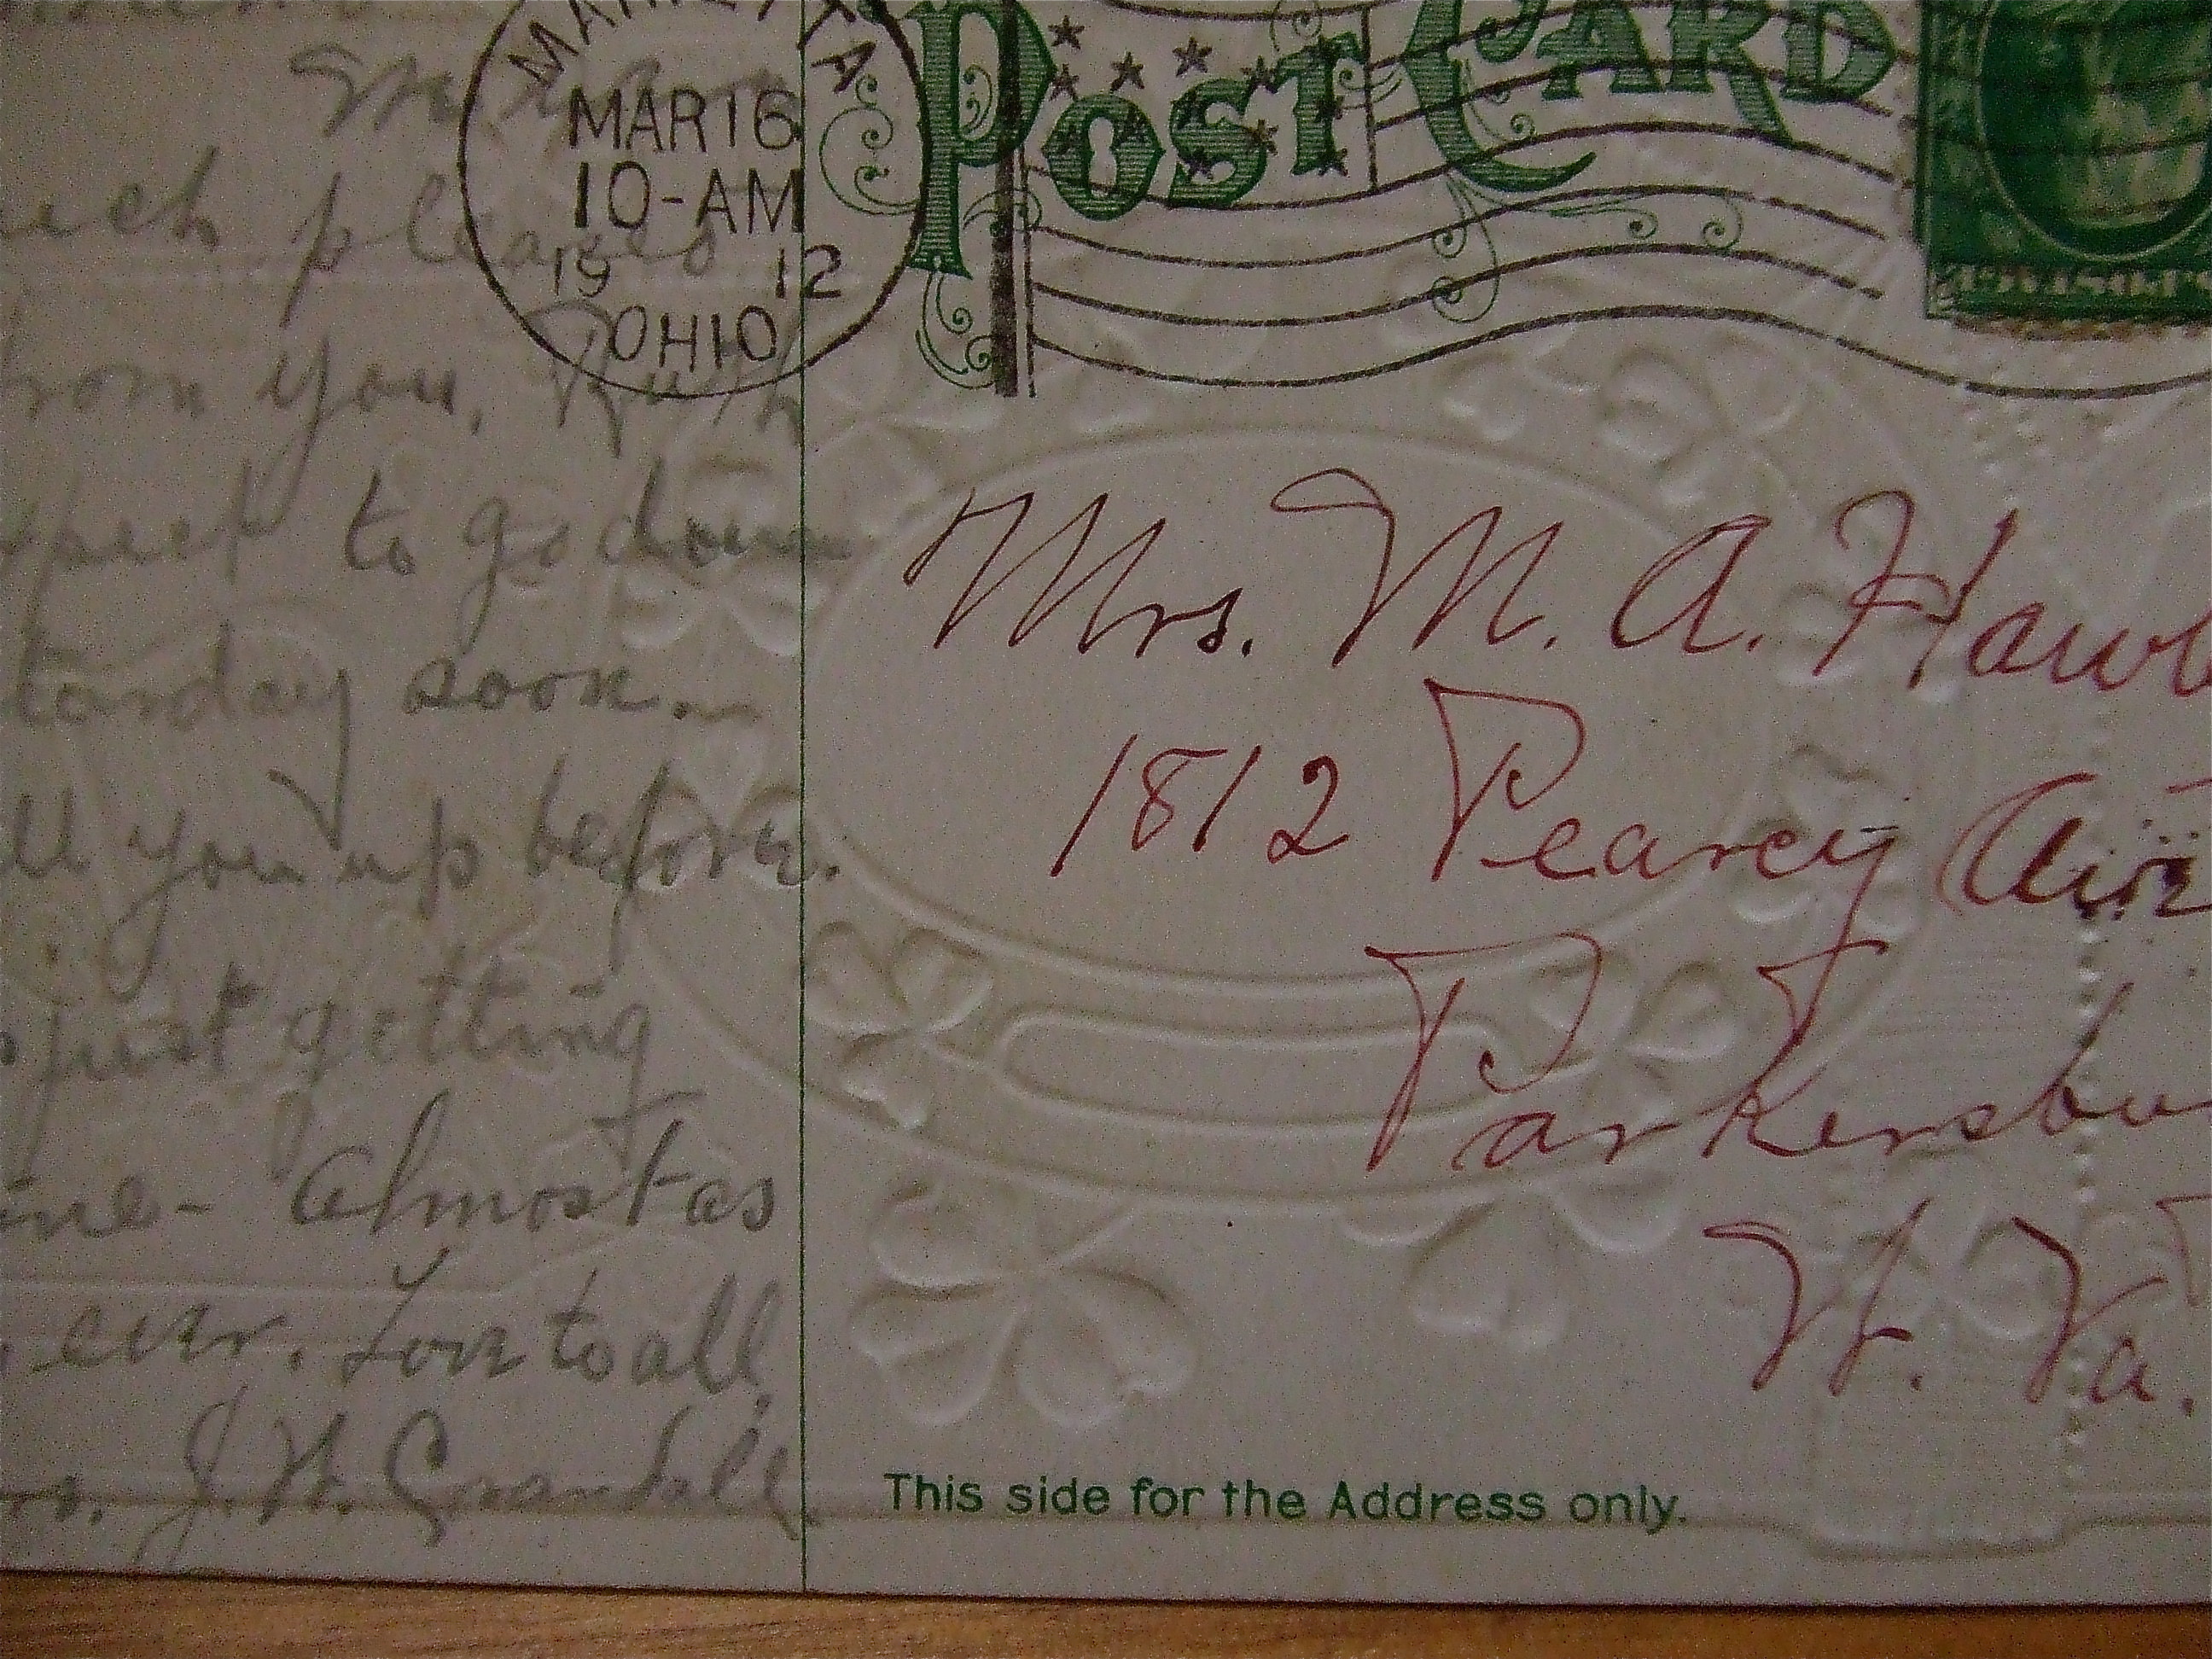 MARIETTA
MAR 16
10-AM
19 12
OHIO
POST CARD
pleased
from you, Ruth
to go down
soon.
you up before.
just getting
almost as
ever. Love to all
J. H. Crandall.
Mrs. M. A. Hawl
1812 Pearcy Ave
Parkersbu
W. Va.
This side for the Address only.